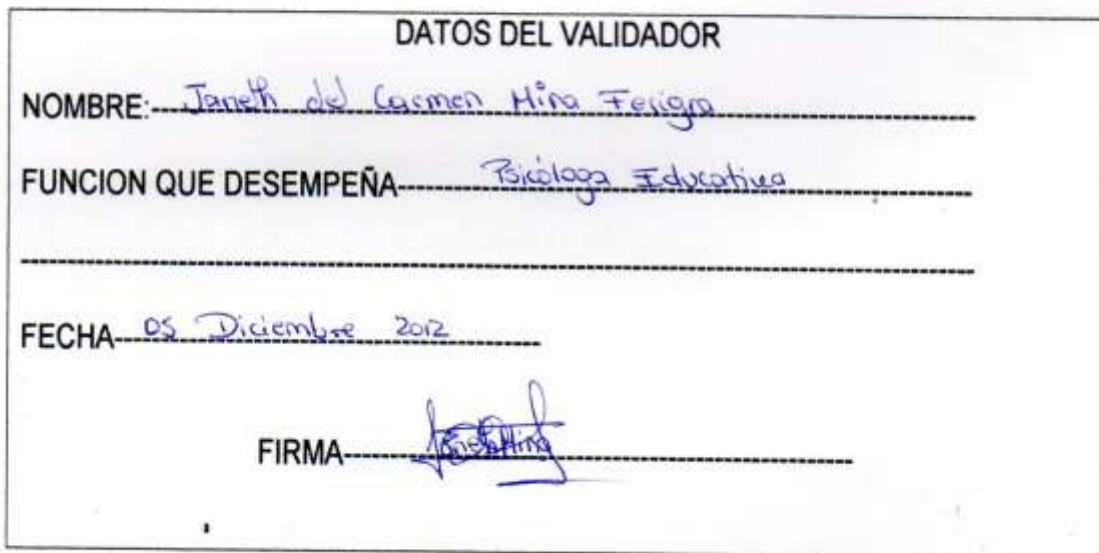 DATOS DEL VALIDADOR
NOMBRE: Janeth del Carmen Mina
FUNCION QUE DESEMPEÑA Psicóloga Educativa
FECHA 05 Diciembre 2012
FIRMA Janeth Mina